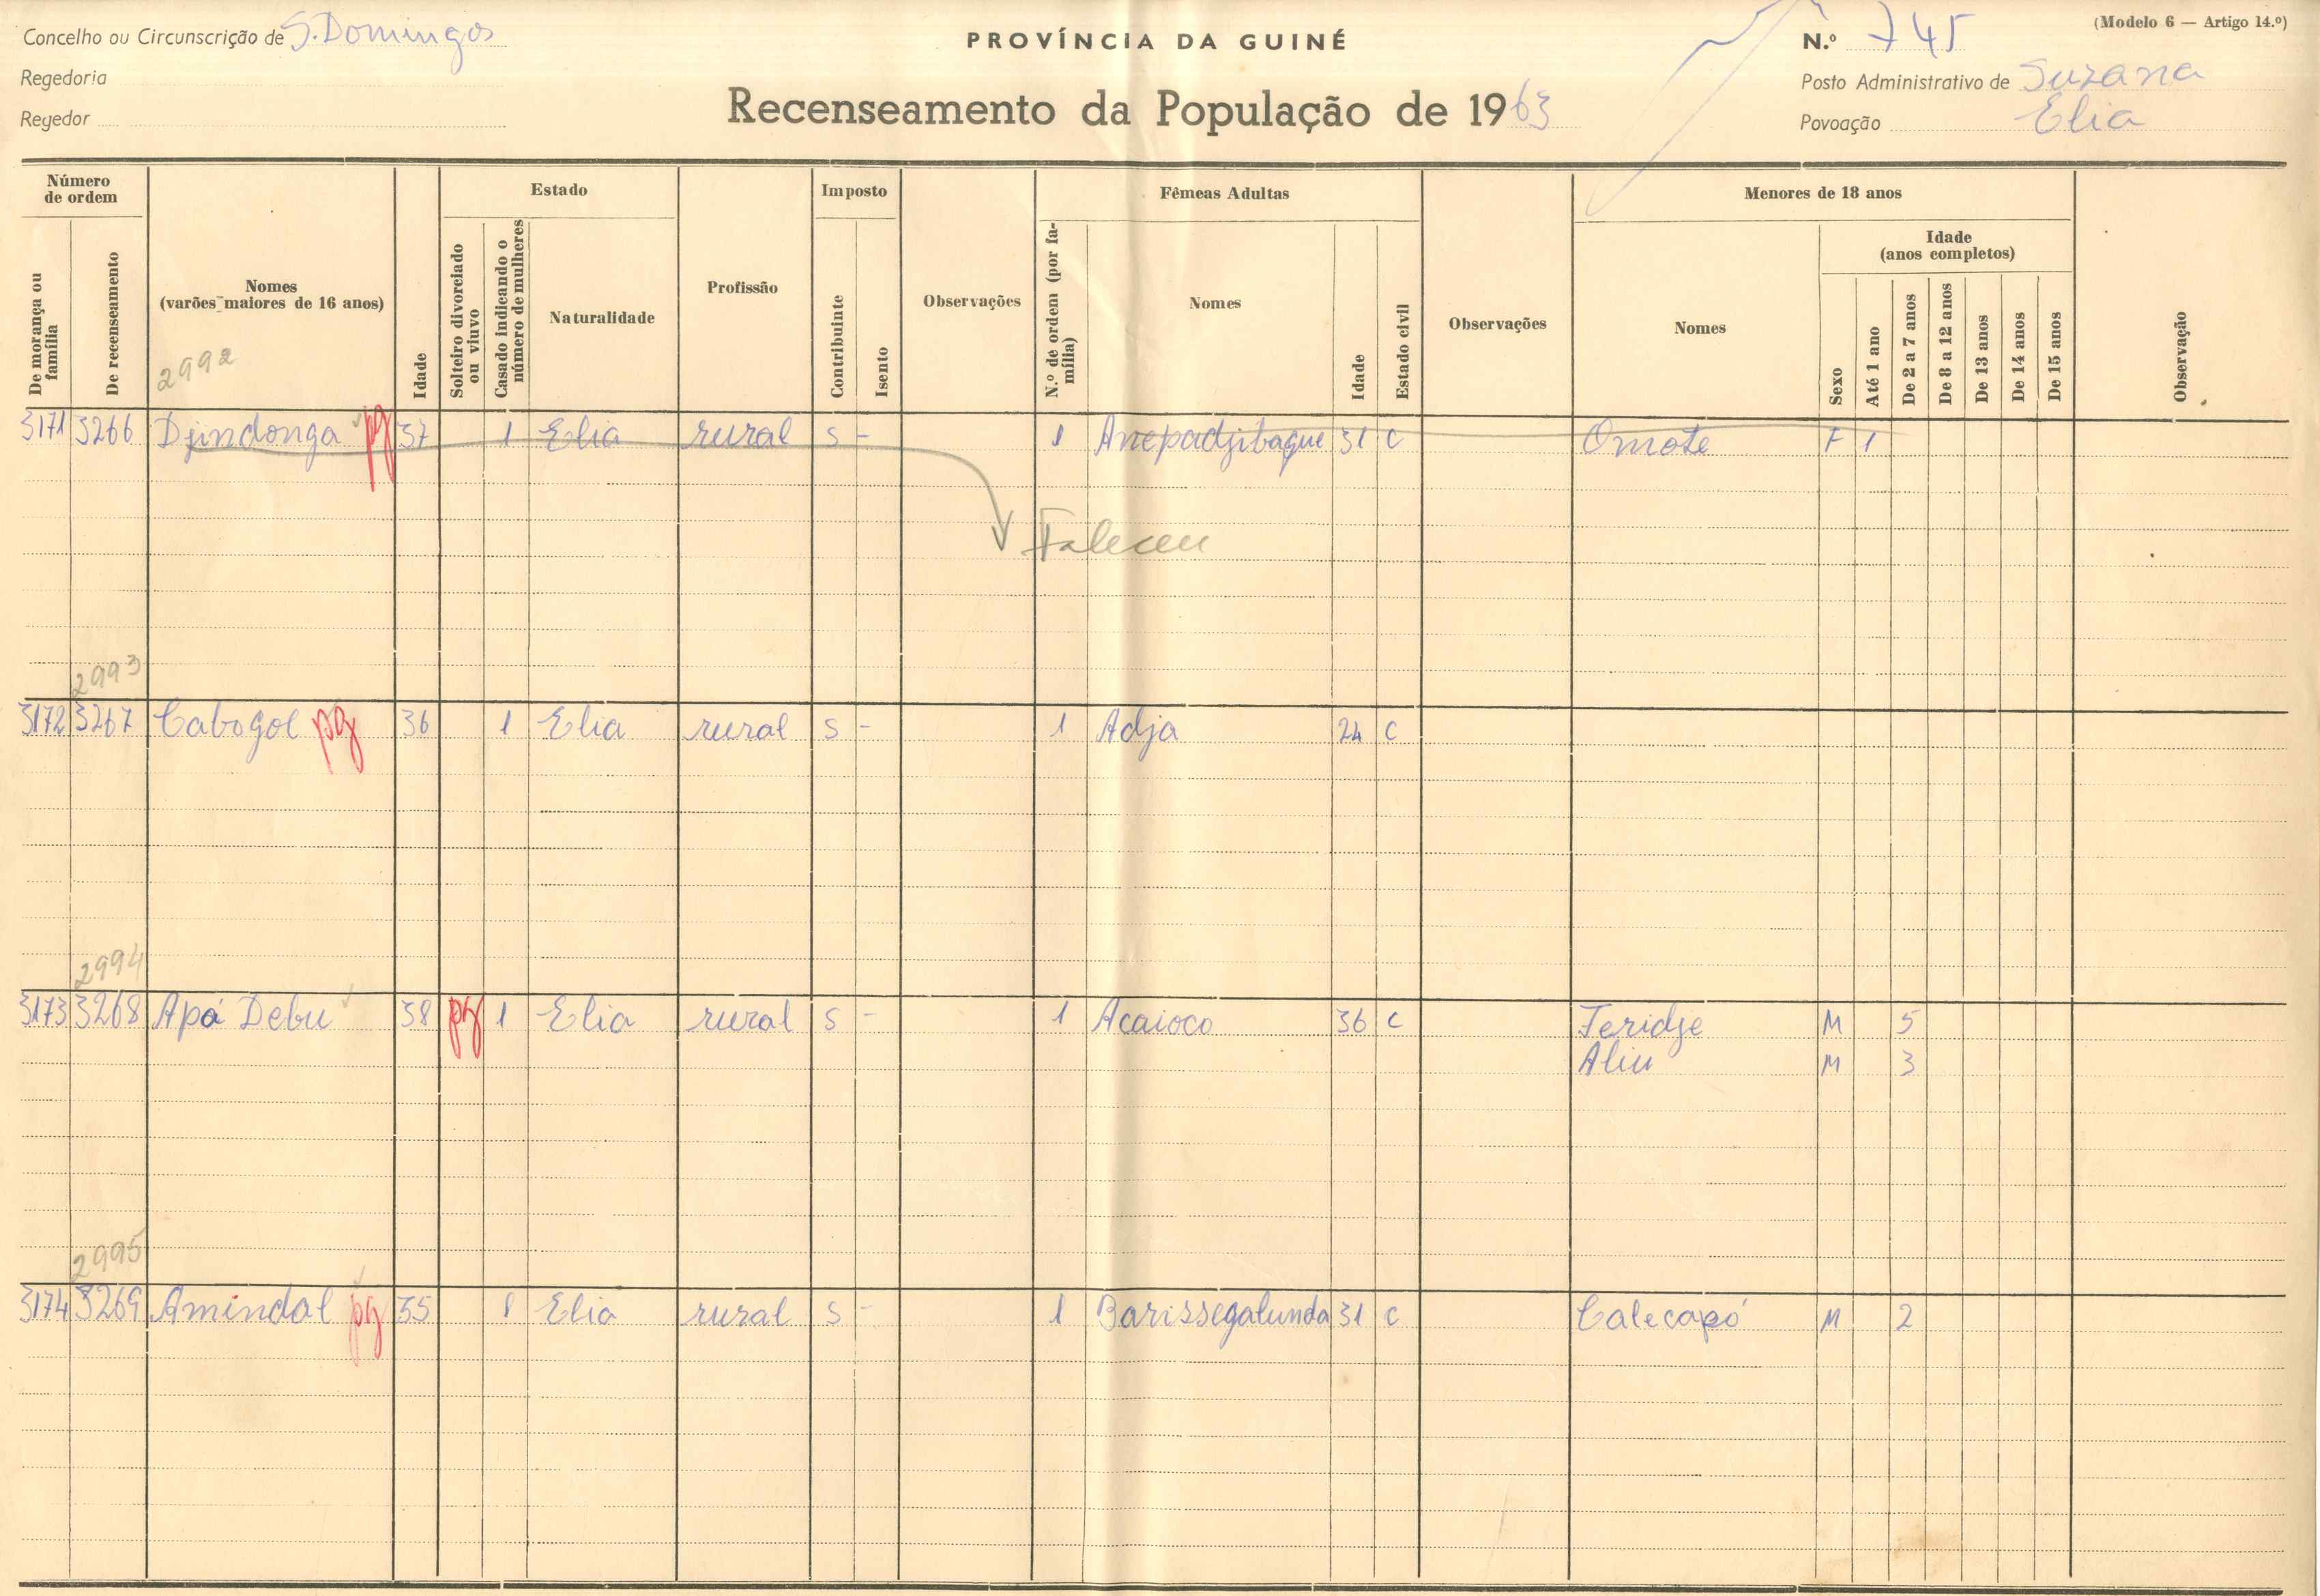 Concelho ou Circunscrição de S. Domingos
Regedoria
Regedor
PROVÍNCIA DA GUINÉ
Recenseamento da População de 1963
(Modelo 6 — Artigo 14.º)
N.º 745
Posto Administrativo de Suzana
Povoação Elia
Número de ordem
De morança ou família
De recenseamento
Nomes
(varões maiores de 16 anos)
Idade
Estado
Solteiro divorciado ou viuvo
Casado indicando o número de mulheres
Naturalidade
Profissão
Imposto
Contribuinte
Isento
Observações
Fêmeas Adultas
N.º de ordem (por família)
Nomes
Idade
Estado civil
Observações
Menores de 18 anos
Nomes
Idade
(anos completos)
Sexo
Até 1 ano
De 2 a 7 anos
De 8 a 12 anos
De 13 anos
De 14 anos
De 15 anos
Observação
2992
3171 3266 Djindonga pg 37 1 Elia rural S - 1 Anepadjibaque 31 C Omote F 1
Faleceu
2993
3172 3267 Cabogol pg 36 1 Elia rural S - 1 Adja 24 C
2994
3173 3268 Apá Debu 38 pg 1 Elia rural S - 1 Acaioco 36 C Feridje M 5
Aliu M 3
2995
3174 3269 Amindal pg 35 1 Elia rural S - 1 Barissegalunda 31 C Calecapó M 2